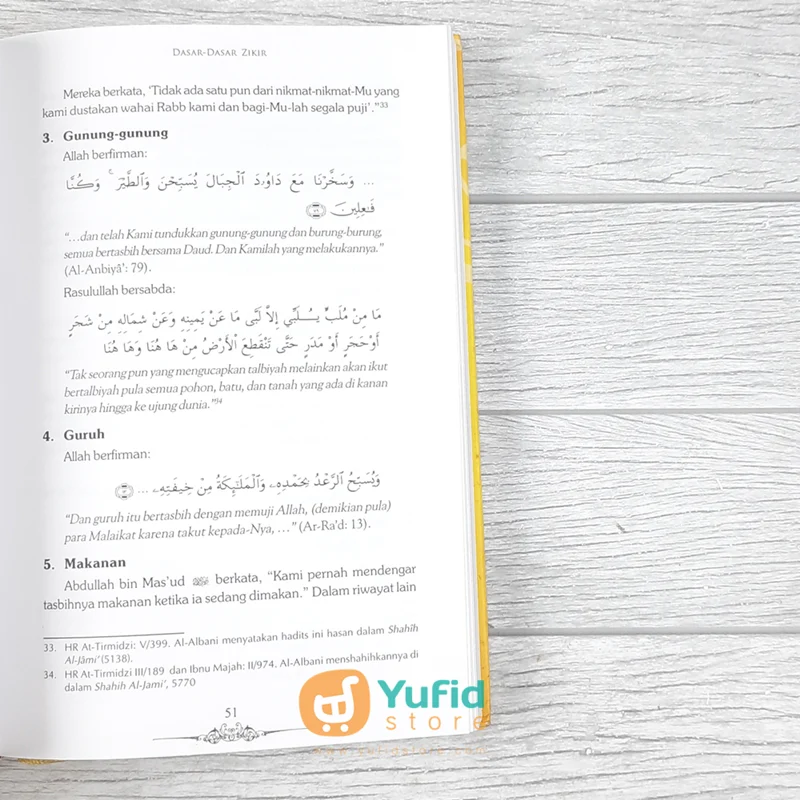 DASAR-DASAR ZIKIR
Mereka berkata, ‘Tidak ada satu pun dari nikmat-nikmat-Mu yang
kami dustakan wahai Rabb kami dan bagi-Mu-lah segala puji’.”33
3. Gunung-gunung
Allah berfirman:
... وَسَخَّرْنَا مَعَ دَاوُۥدَ ٱلْجِبَالَ يُسَبِّحْنَ وَٱلطَّيْرَ ۚ وَكُنَّا
فَـٰعِلِينَ ۝٧٩
“...dan telah Kami tundukkan gunung-gunung dan burung-burung,
semua bertasbih bersama Daud. Dan Kamilah yang melakukannya.”
(Al-Anbiyâ’: 79).
Rasulullah bersabda:
مَا مِنْ مُلَبٍّ يُـلَبِّي إِلاَّ لَبَّى مَا عَنْ يَمِينِهِ وَعَنْ شِمَالِهِ مِنْ شَجَرٍ
أَوْحَجَرٍ أَوْ مَدَرٍ حَتَّى تَنْقَطِعَ الْأَرْضُ مِنْ هَا هُنَا وَهَا هُنَا
“Tak seorang pun yang mengucapkan talbiyah melainkan akan ikut
bertalbiyah pula semua pohon, batu, dan tanah yang ada di kanan
kirinya hingga ke ujung dunia.”34
4. Guruh
Allah berfirman:
وَيُسَبِّحُ ٱلرَّعْدُ بِحَمْدِهِۦ وَٱلْمَلَـٰٓئِكَةُ مِنْ خِيفَتِهِۦ ... ۝١٣
“Dan guruh itu bertasbih dengan memuji Allah, (demikian pula)
para Malaikat karena takut kepada-Nya, ...” (Ar-Ra’d: 13).
5. Makanan
Abdullah bin Mas’ud berkata, “Kami pernah mendengar
tasbihnya makanan ketika ia sedang dimakan.” Dalam riwayat lain
33. HR At-Tirmidzi: V/399. Al-Albani menyatakan hadits ini hasan dalam Shahîh
Al-Jâmi’ (5138).
34. HR At-Tirmidzi III/189 dan Ibnu Majah: II/974. Al-Albani menshahihkannya di
dalam Shahih Al-Jami’, 5770
51
Yufid
store